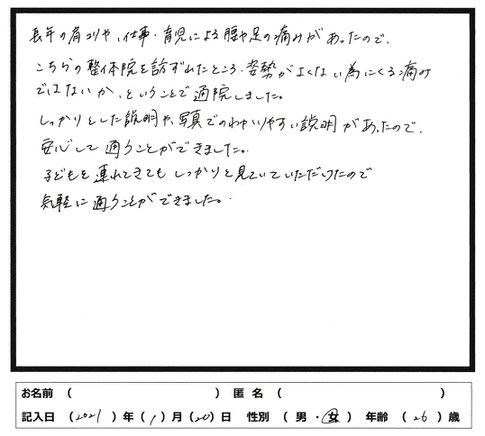 長年の肩コリや、仕事・育児による腰や足の痛みがあったので、
こちらの整体院を訪ずれたところ、姿勢がよくない為にくる痛み
ではないか、ということで通院しました。
しっかりとした説明や、写真でのわかりやすい説明があったので、
安心して通うことができました。
子どもを連れてきてもしっかりと見ていていただけたので
気軽に通うことができました。
お名前 ( ) 匿名 ( )
記入日 (2021) 年 (1) 月 (20) 日 性別 (男・女) 年齢 (26) 歳